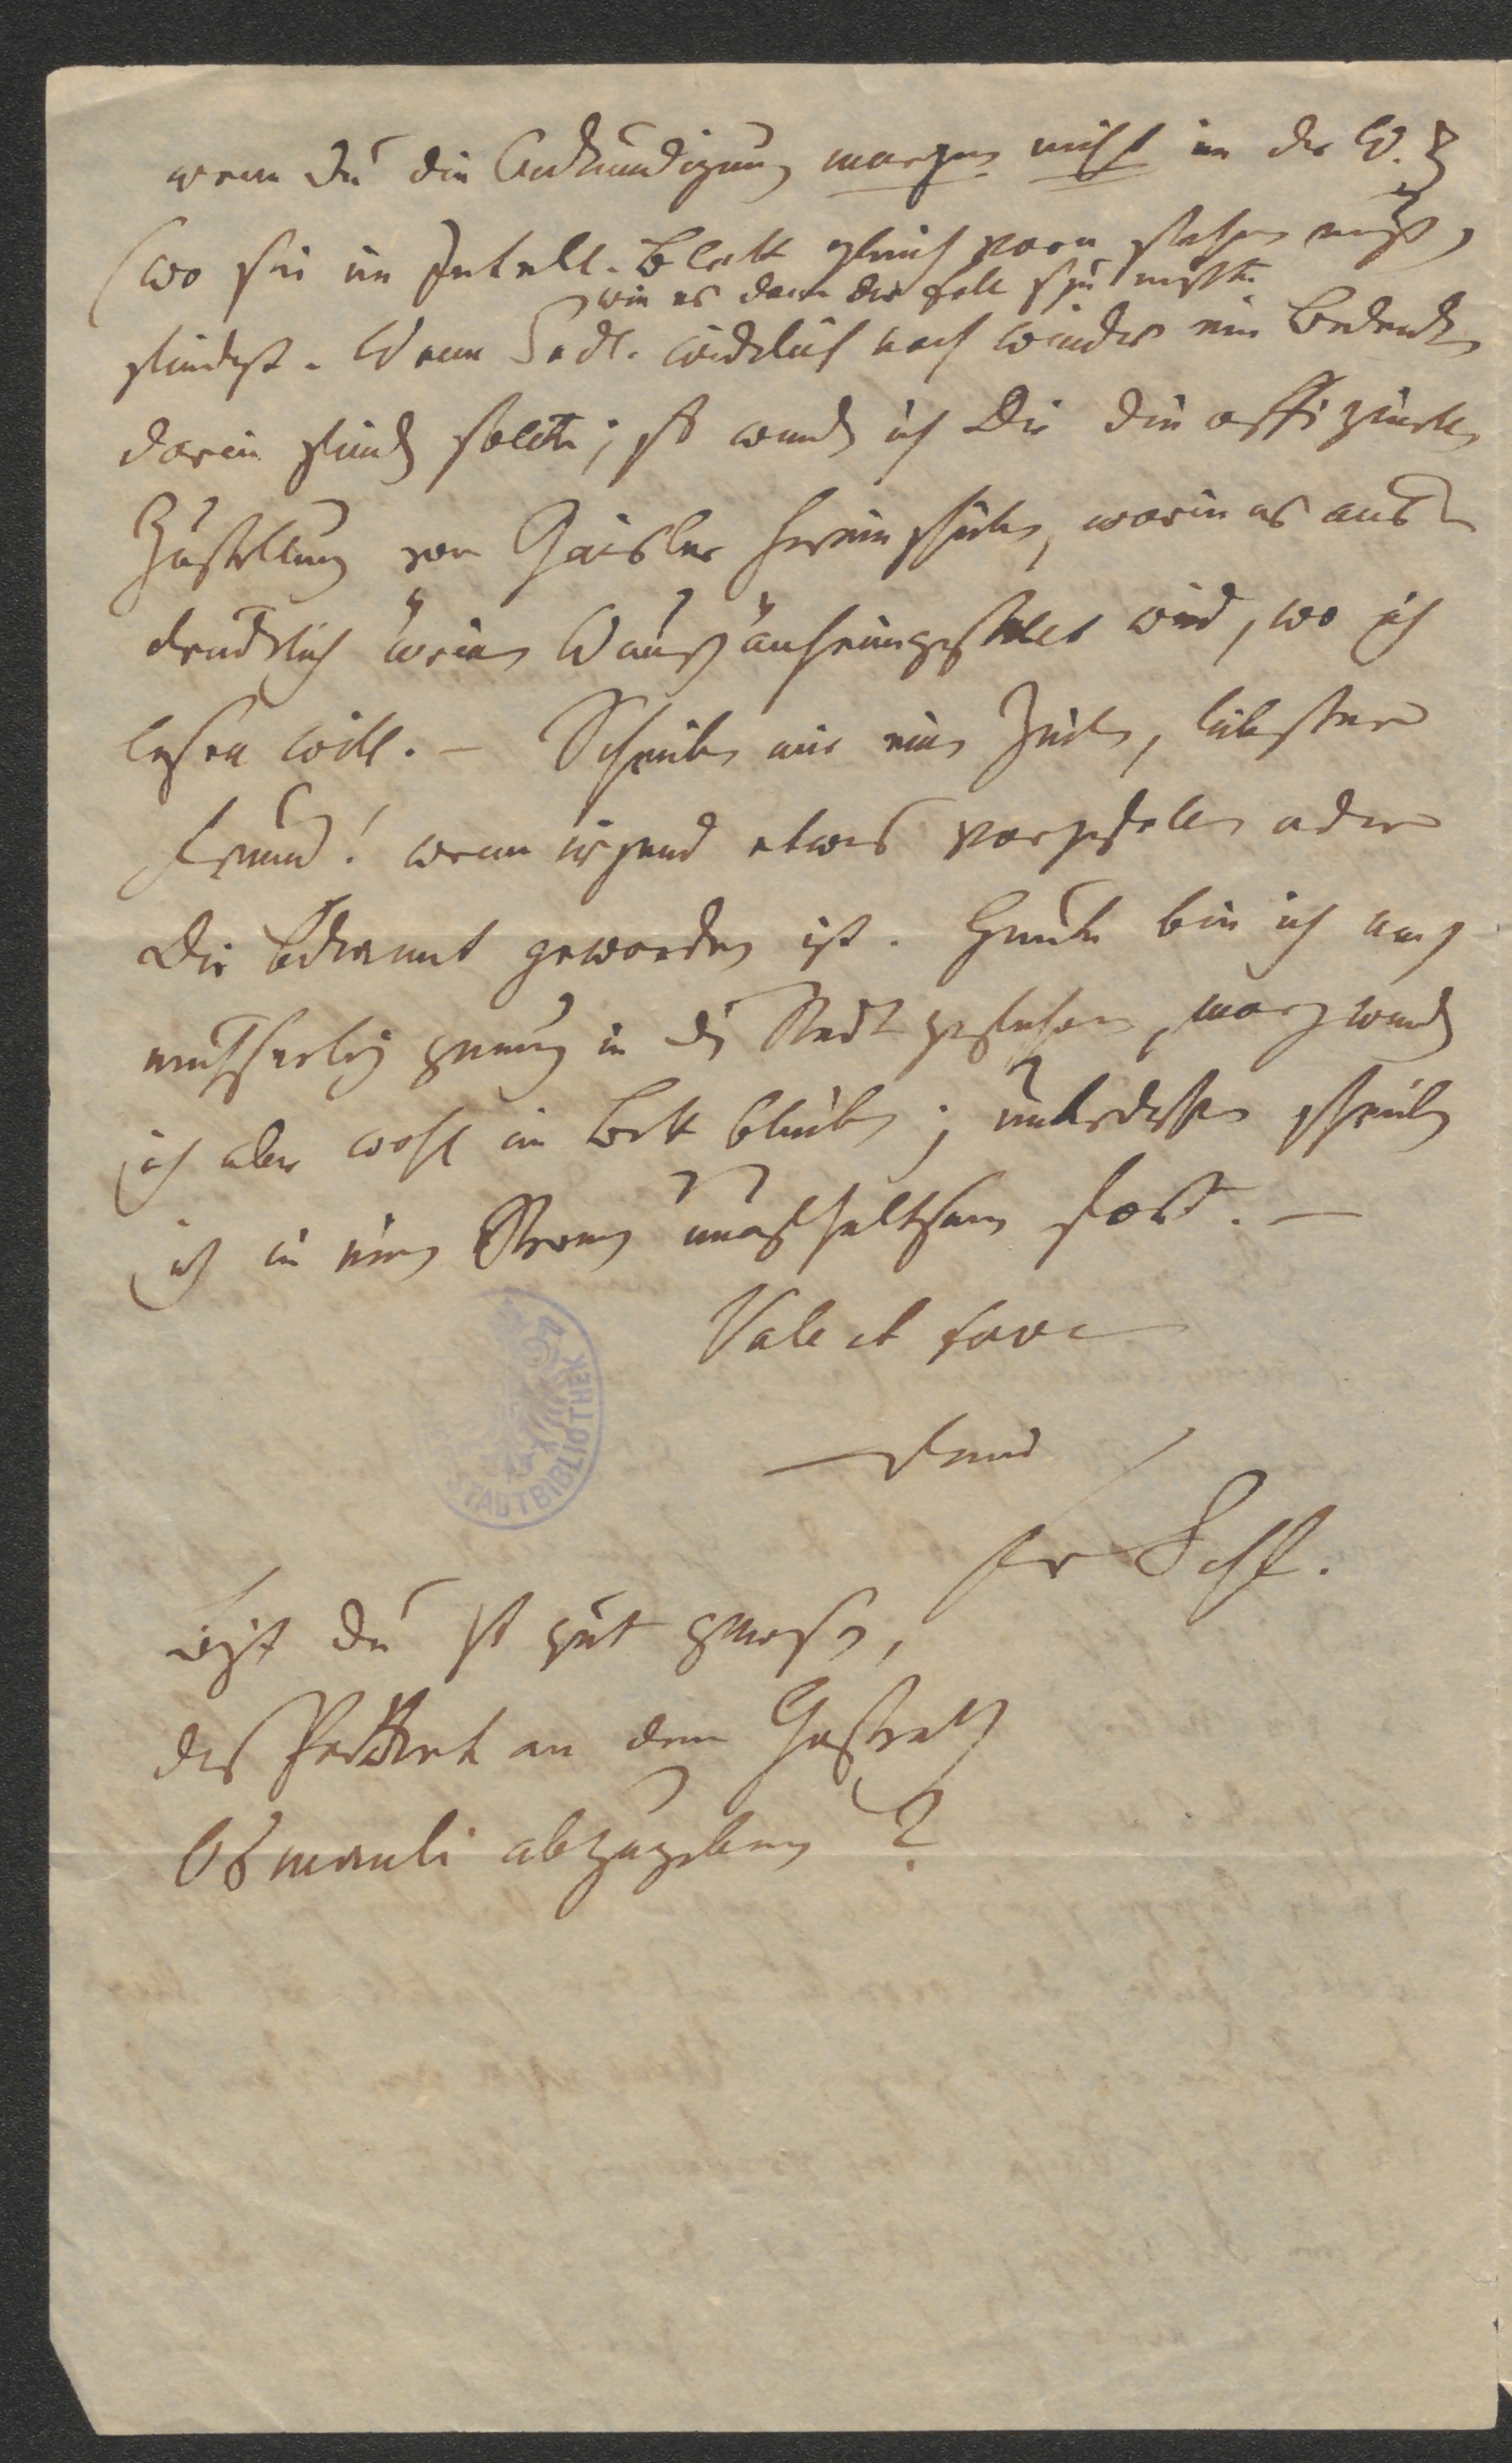 wenn Du die Ankündigung morgen nicht in der W. Z
(wo sie im Intell. Blatt gleich vorn stehen muß,
wie es dann der Fall seyn müßte
findest. Wenn Sedl. wirklich noch wieder ein Bedenken
darin finden sollte; so werde ich Dir die offizielle
Zustellung von Geisler hereinschicken, worin es aus=
drücklich meinem Wunsch anheimgestellt wird, wo ich
lesen will. – Schreibe mir eine Zeile, liebster
Freund! wenn irgend etwas vorgefallen oder
Dir bekannt geworden ist. Heute bin ich noch
mühselig genug in die Stadt gefahren, morgen werde
ich aber wohl im Bett bleiben; unterdessen schreibe
ich in einem Strom unaufhaltsam fort. –
Vale et fave
Freund
Fr Schl.
Bist Du so gut gewesen,
das Packet an den Gesandten
Osmanli abzugeben?
STADTBIBLIOTHEK